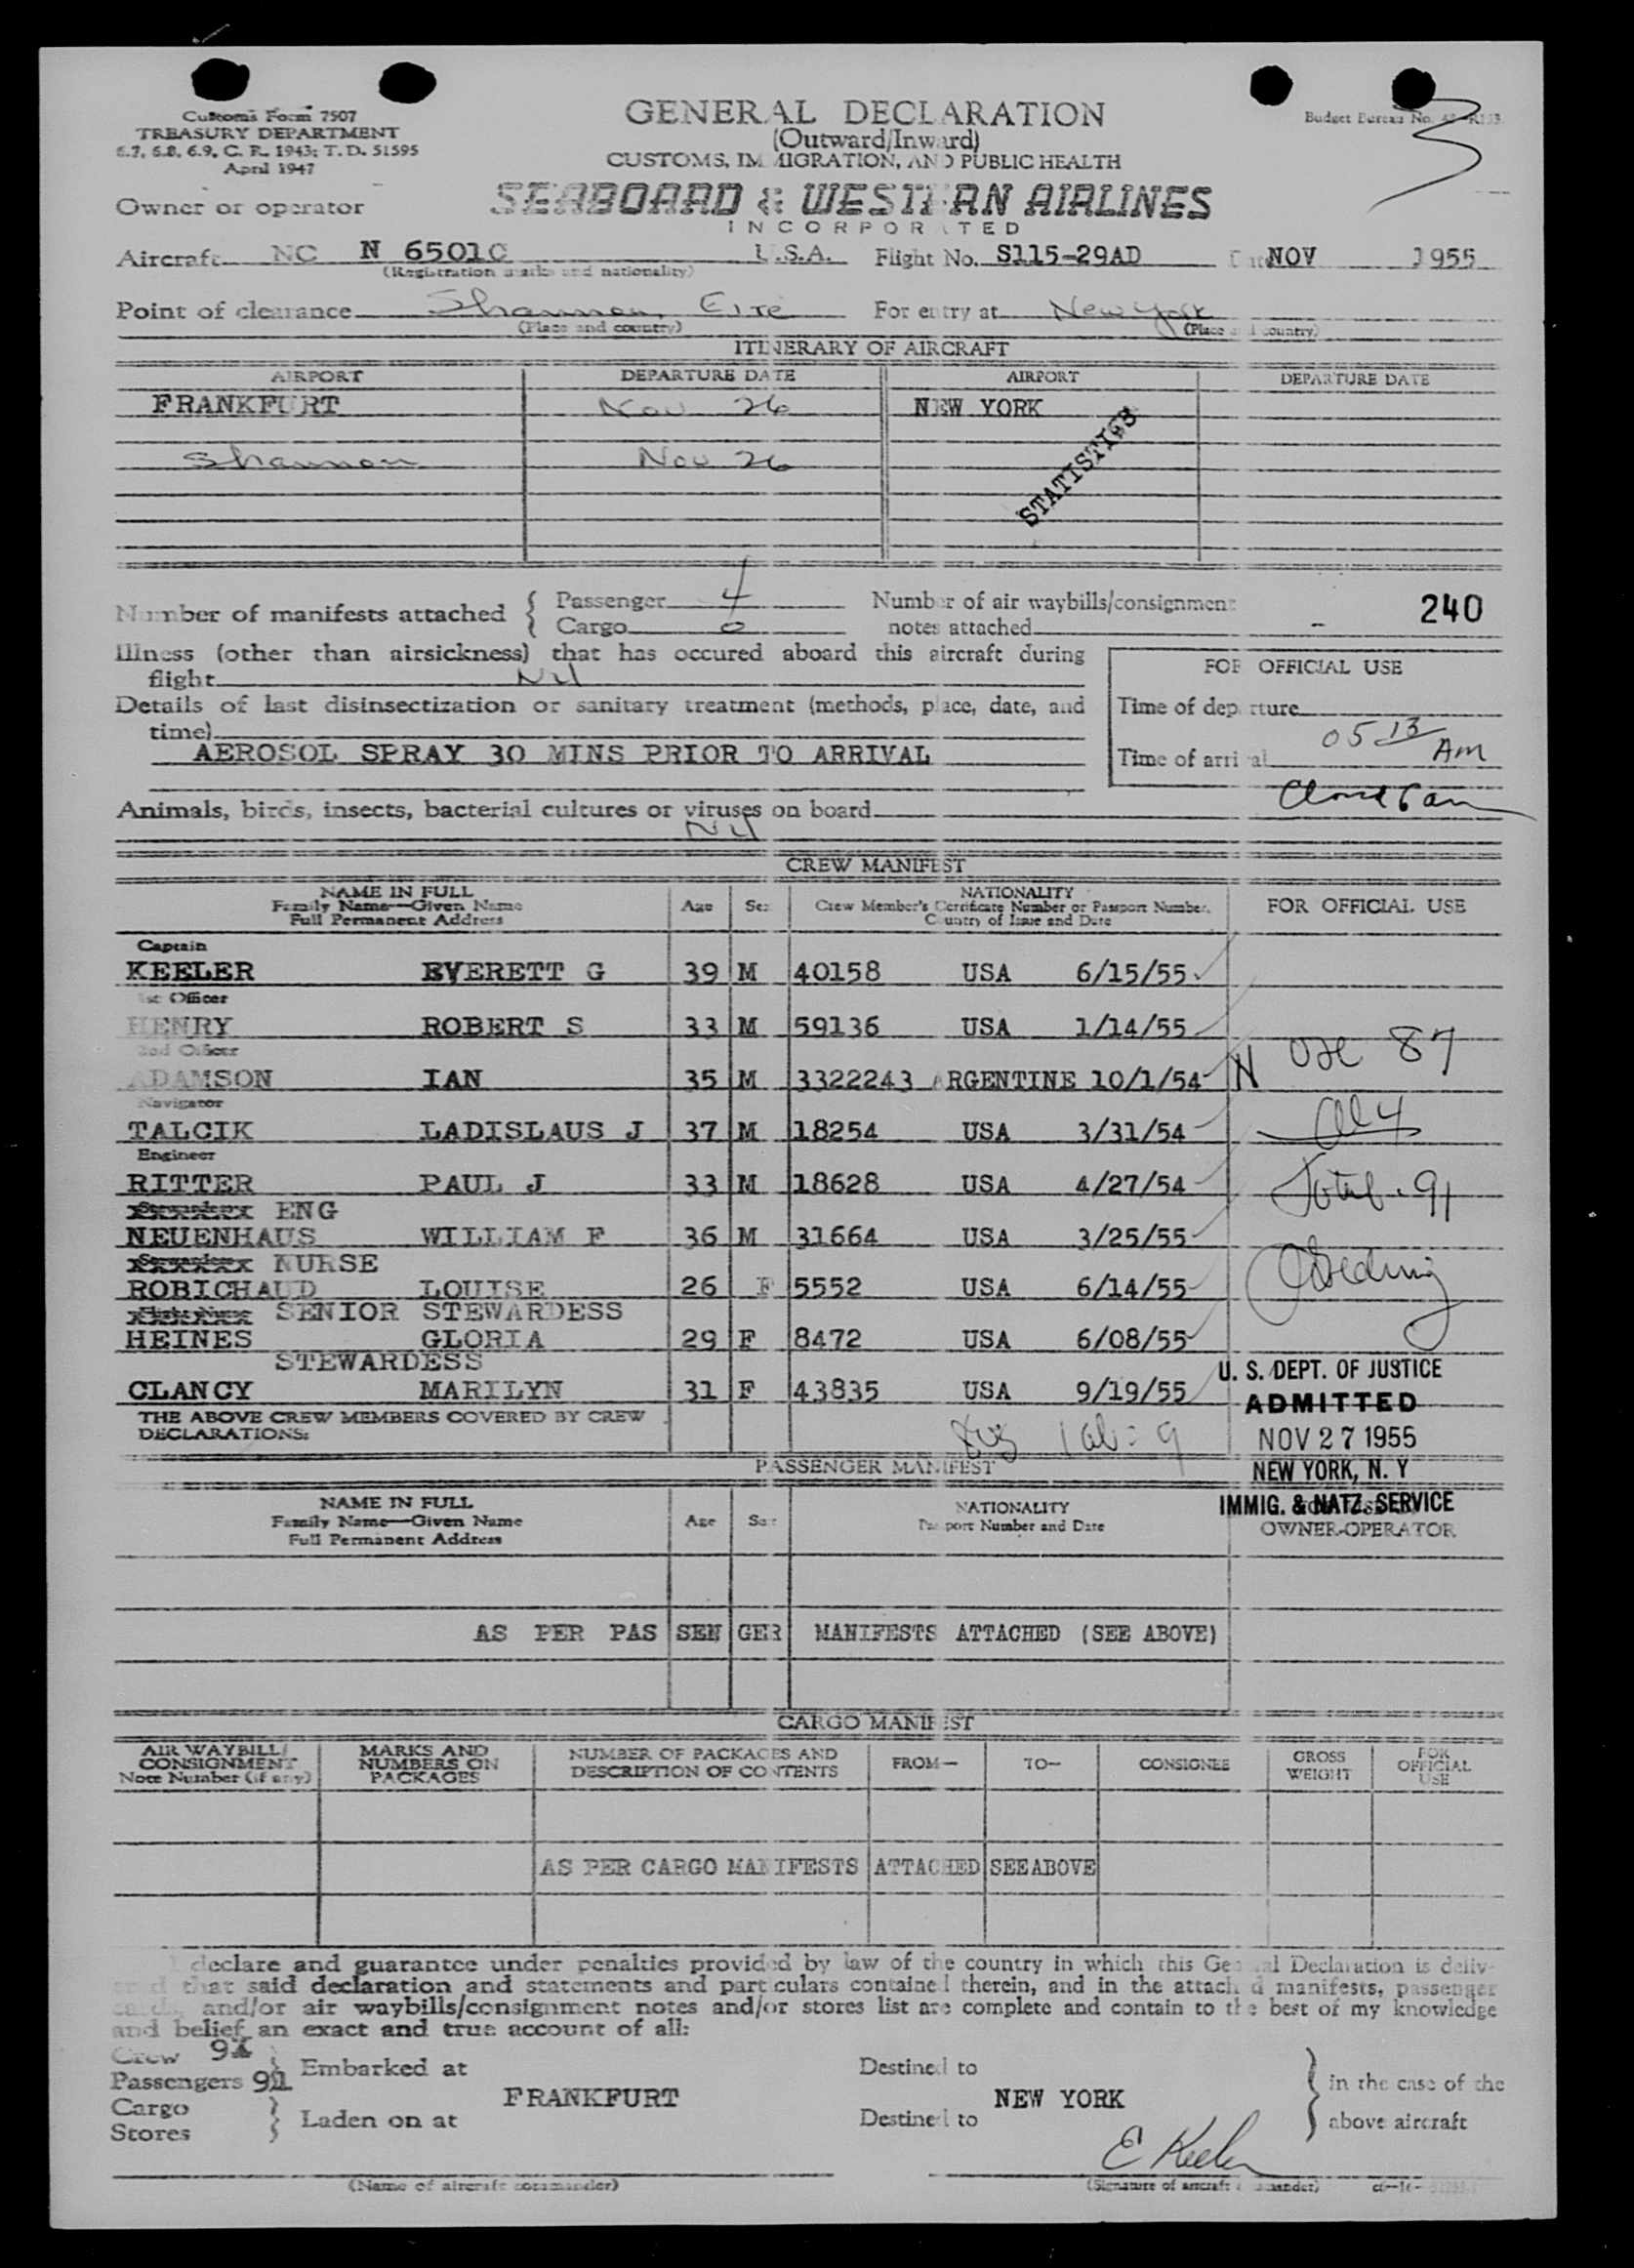 Customs Form 7507
TREASURY DEPARTMENT
6.7, 6.8, 6.9, C. R. 1943; T. D. 51595
April 1947
GENERAL DECLARATION
(Outward/Inward)
CUSTOMS, IMMIGRATION, AND PUBLIC HEALTH
Budget Bureau No.
Owner or operator
SEABOARD & WESTERN AIRLINES
INCORPORATED
Aircraft NC N 6501C U.S.A. Flight No. S115-29AD Date NOV 1955
(Registration marks and nationality)
Point of clearance Shannon, Eire For entry at New York
(Place and country) (Place and country)
ITINERARY OF AIRCRAFT
AIRPORT DEPARTURE DATE AIRPORT DEPARTURE DATE
FRANKFURT Nov 26 NEW YORK
Shannon Nov 26
STATISTICS
Number of manifests attached { Passenger 4
Cargo 0
Number of air waybills/consignment
notes attached - 240
Illness (other than airsickness) that has occured aboard this aircraft during
flight Nil
Details of last disinsectization or sanitary treatment (methods, place, date, and
time)
AEROSOL SPRAY 30 MINS PRIOR TO ARRIVAL
FOR OFFICIAL USE
Time of departure
Time of arrival 05 13 AM
Animals, birds, insects, bacterial cultures or viruses on board
Nil
CREW MANIFEST
NAME IN FULL
Family Name—Given Name
Full Permanent Address
Age Sex
NATIONALITY
Crew Member's Certificate Number or Passport Number,
Country of Issue and Date
FOR OFFICIAL USE
Captain
KEELER EVERETT G 39 M 40158 USA 6/15/55
1st Officer
HENRY ROBERT S 33 M 59136 USA 1/14/55
2nd Officer
ADAMSON IAN 35 M 3322243 ARGENTINE 10/1/54 N USC 87
Navigator
TALCIK LADISLAUS J 37 M 18254 USA 3/31/54 Al 4
Engineer
RITTER PAUL J 33 M 18628 USA 4/27/54 Total . 91
ENG
NEUENHAUS WILLIAM F 36 M 31664 USA 3/25/55
NURSE
ROBICHAUD LOUISE 26 F 5552 USA 6/14/55
SENIOR STEWARDESS
HEINES GLORIA 29 F 8472 USA 6/08/55
STEWARDESS
CLANCY MARILYN 31 F 43835 USA 9/19/55
THE ABOVE CREW MEMBERS COVERED BY CREW
DECLARATIONS:
U. S. DEPT. OF JUSTICE
ADMITTED
NOV 27 1955
NEW YORK, N. Y
IMMIG. & NATZ. SERVICE
OWNER-OPERATOR
PASSENGER MANIFEST
NAME IN FULL
Family Name—Given Name
Full Permanent Address
Age Sex
NATIONALITY
Passport Number and Date
AS PER PASSENGER MANIFESTS ATTACHED (SEE ABOVE)
CARGO MANIFEST
AIR WAYBILL/
CONSIGNMENT
Note Number (if any)
MARKS AND
NUMBERS ON
PACKAGES
NUMBER OF PACKAGES AND
DESCRIPTION OF CONTENTS
FROM— TO— CONSIGNEE
GROSS
WEIGHT
FOR
OFFICIAL
USE
AS PER CARGO MANIFESTS ATTACHED SEE ABOVE
I declare and guarantee under penalties provided by law of the country in which this General Declaration is deliv-
ered that said declaration and statements and particulars contained therein, and in the attached manifests, passenger
cards, and/or air waybills/consignment notes and/or stores list are complete and contain to the best of my knowledge
and belief an exact and true account of all:
Crew 9
Passengers 91
Cargo
Stores
Embarked at
FRANKFURT
Laden on at
Destined to
NEW YORK
Destined to
in the case of the
above aircraft
E Keeler
(Name of aircraft commander) (Signature of aircraft commander)